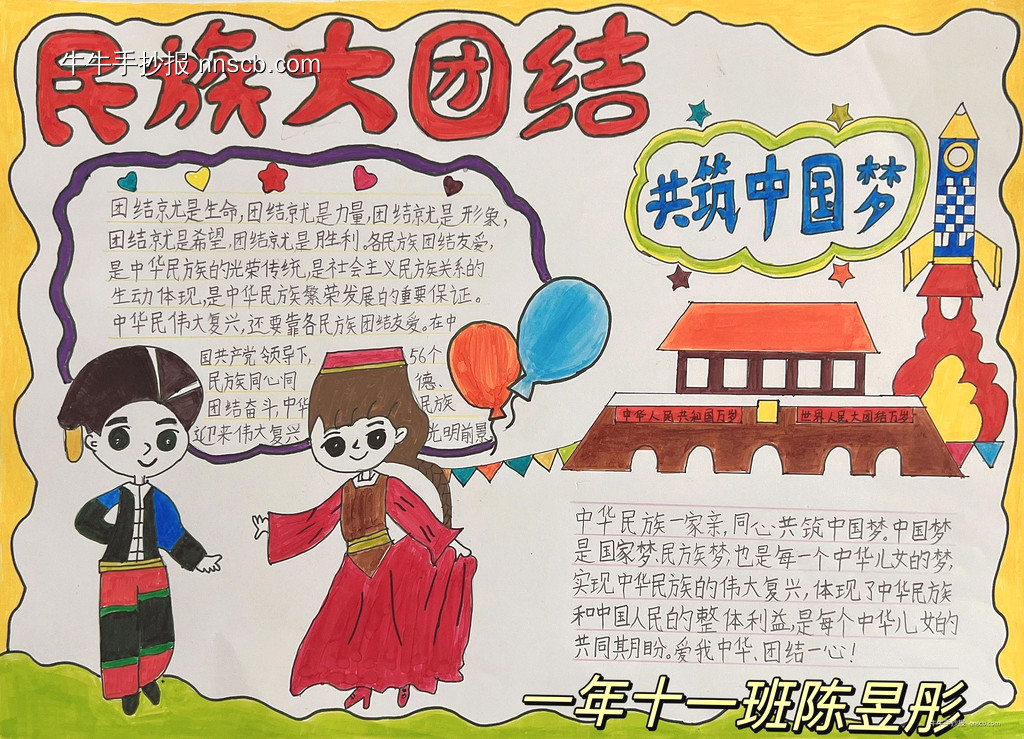 民族大团结
牛牛手抄报 nnscb.com
共筑中国梦
团结就是生命,团结就是力量,团结就是形象,
团结就是希望,团结就是胜利。各民族团结友爱,
是中华民族的光荣传统,是社会主义民族关系的
生动体现,是中华民族繁荣发展的重要保证。
中华民伟大复兴,还要靠各民族团结友爱。在中
国共产党领导下, 56个
民族同心同 德、
团结奋斗,中华 民族
迎来伟大复兴 光明前景
中华人民共和国万岁
世界人民大团结万岁
中华民族一家亲,同心共筑中国梦。中国梦
是国家梦、民族梦,也是每一个中华儿女的梦,
实现中华民族的伟大复兴,体现了中华民族
和中国人民的整体利益,是每个中华儿女的
共同期盼。爱我中华、团结一心!
一年十一班陈昱彤
牛牛手抄报 nnscb.com